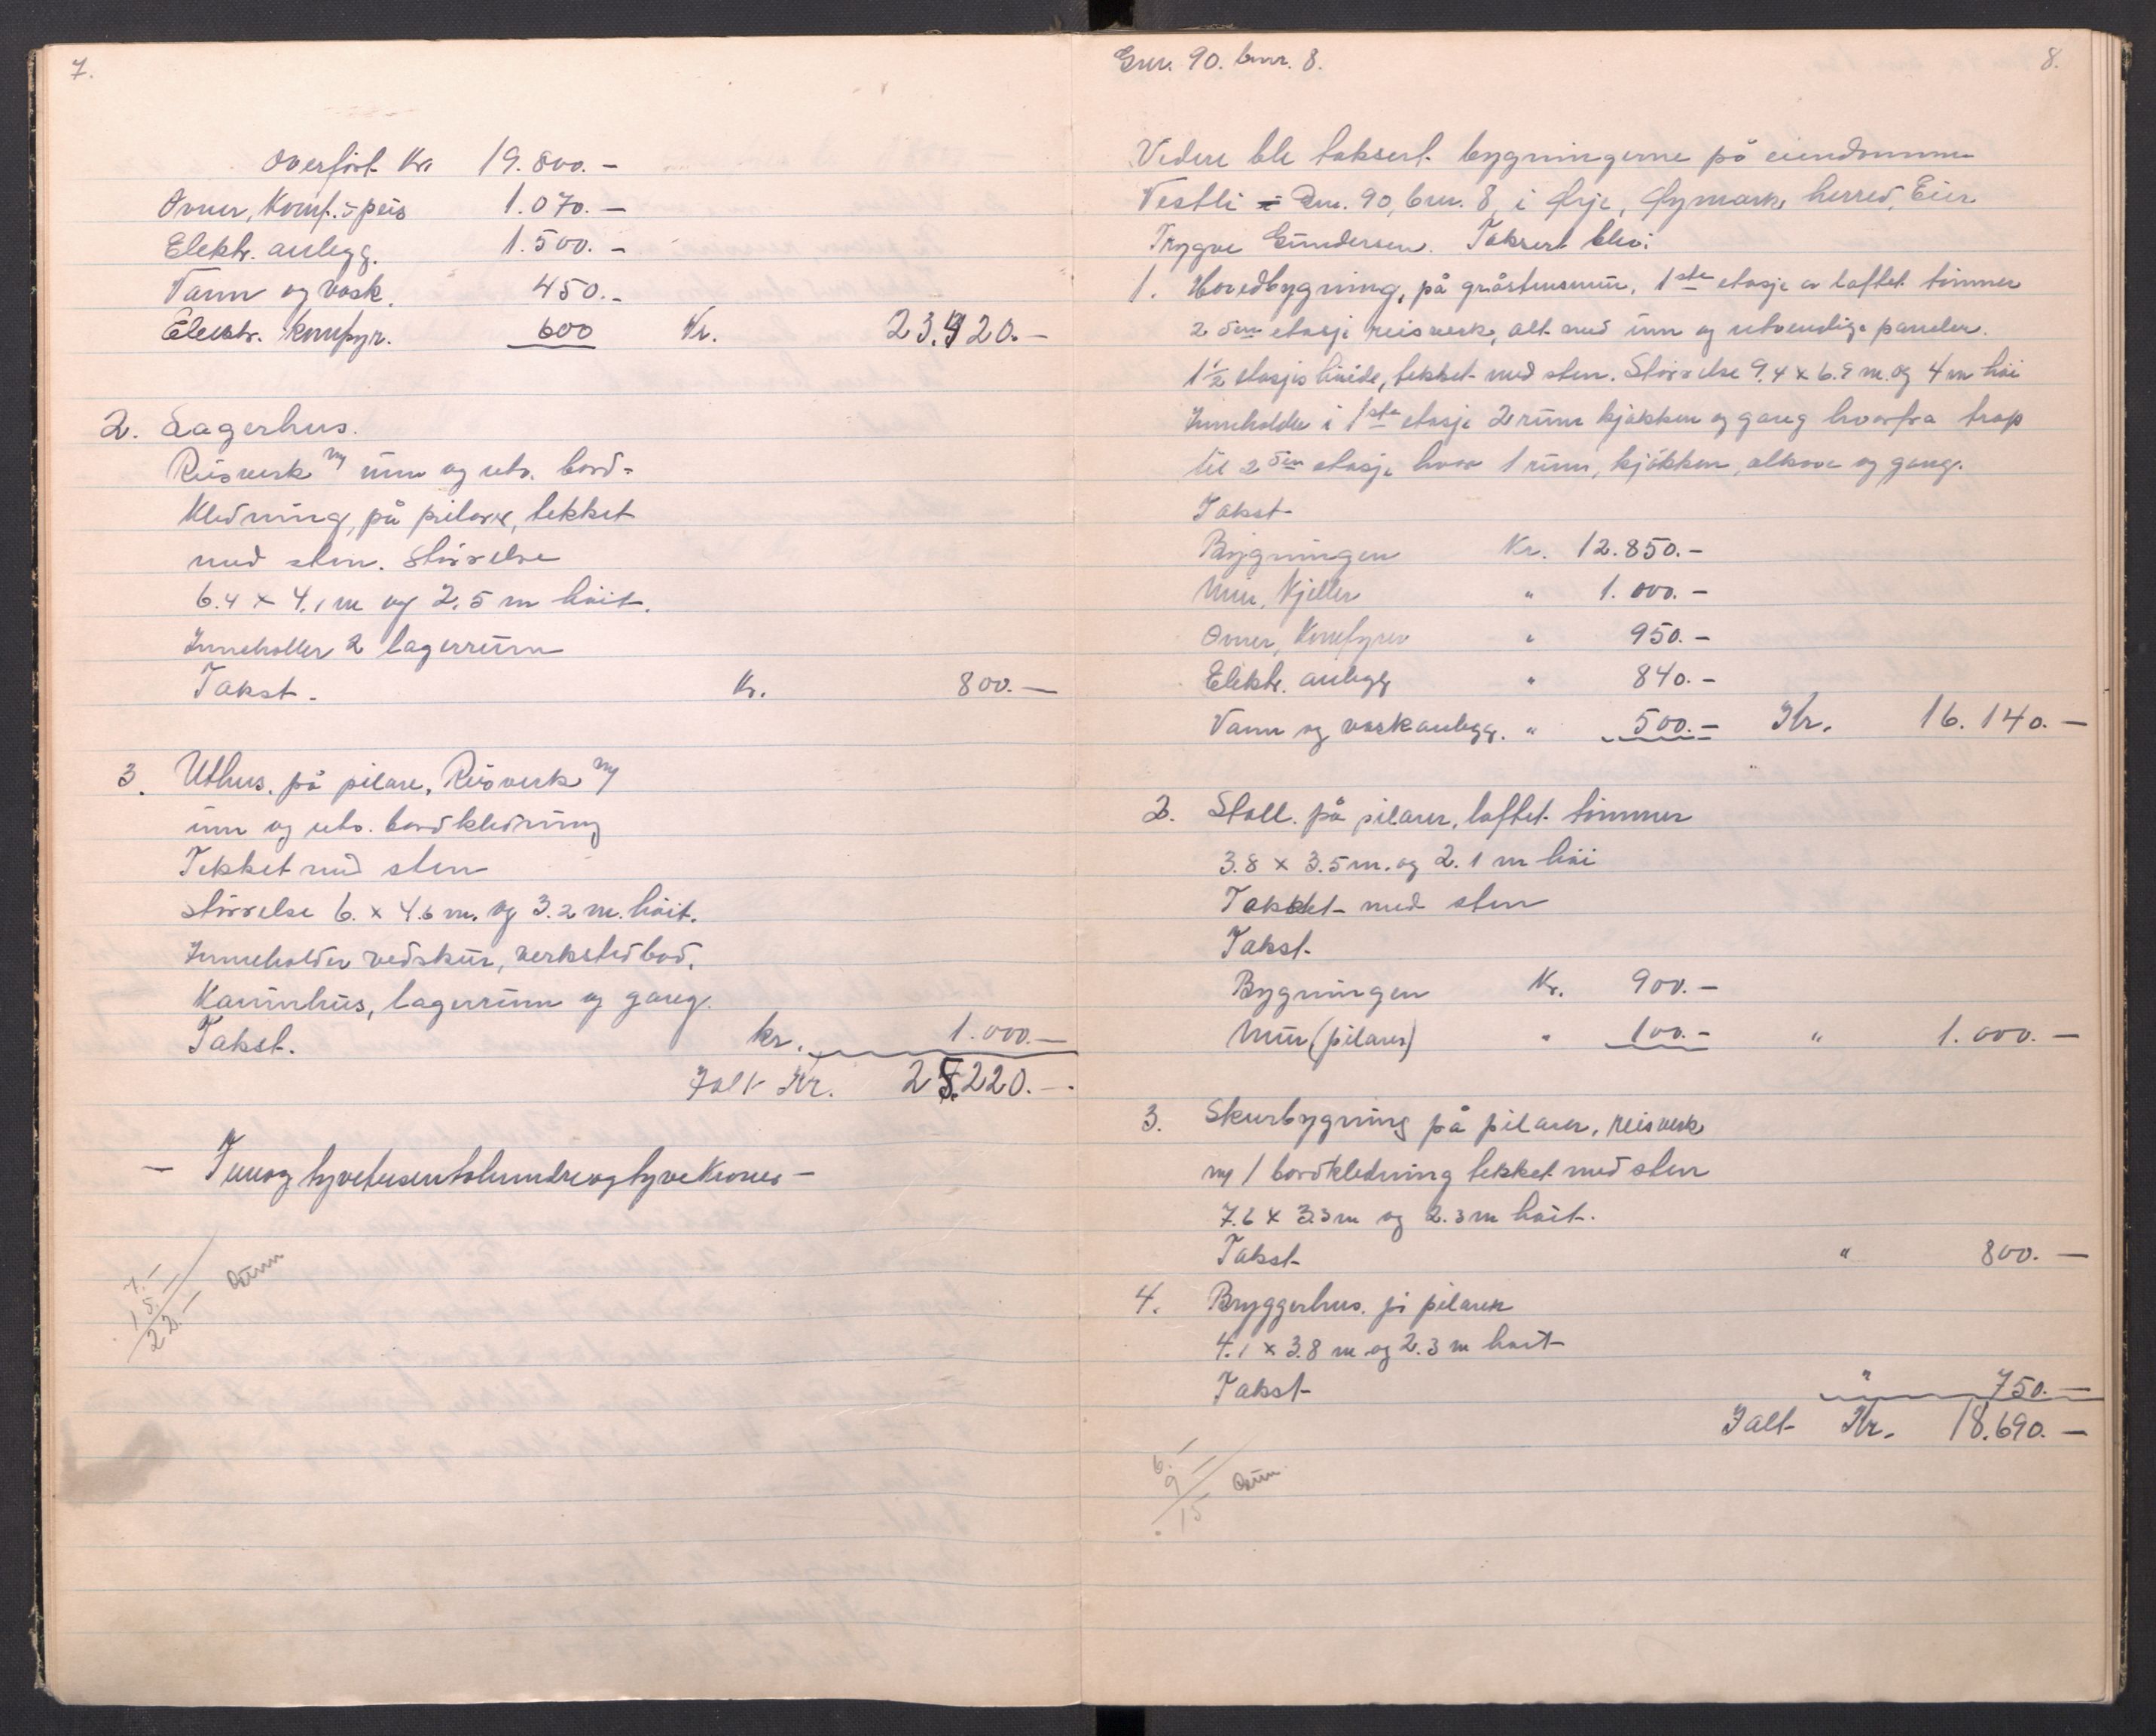 7.
Overført Kr. 19.800.-
Ovner, Komf. & peis 1.070.-
Elektr. anlegg. 1.500.-
Vann og vask. 450.-
Elektr. komfyr. 600 Kr. 23.420.-
2. Lagerhus.
Reisverk m/ inn og utv. bord-
kledning, på pilarer, tekket
med sten. Størrelse
6.4 x 4.1 m og 2.5 m høit.
Inneholder 2 lagerrum
Takst. Kr. 800.-
3. Uthus. på pilare, Reisverk m/
inn og utv. bordkledning
Tekket med sten
størrelse 6. x 4.6 m. og 3.2 m. høit.
Inneholder vedskur, verkstedbod,
Kaninhus, lagerrum og gang.
Takst. kr. 1.000.-
Ialt Kr. 25.220.-
- Femogtyvetusentohundreogtyve Kroner -
7.-
15.-
22.-
Gnr. 90. bnr. 8. 8.
Videre ble taksert bygningerne på eiendommen
Vestli Gnr. 90, bnr. 8, i Ørje, Øymark, herred, Eier
Trygve Gundersen. Taksert blev:
1. Hovedbygning, på gråstensmur, 1ste etasje av laftet tømmer
2den etasje reisverk, alt med inn og utvendige paneler.
1½ etasjes høide, tekket med sten. Størrelse 9.4 x 6.9 m. og 4 m høi
Inneholder i 1ste etasje 2 rum kjøkken og gang hvorfra trap
til 2den etasje hvor 1 rum, kjøkken, alkove og gang.
Takst
Bygningen Kr. 12.850.-
Mur, Kjeller " 1.000.-
Ovner, Komfyrer " 950.-
Elektr. anlegg " 840.-
Vann og vaskanlegg. " 500.- Kr. 16.140.-
2. Stall. på pilarer, laftet tømmer
3.8 x 3.5 m. og 2.1 m høi
Tekket med sten
Takst
Bygningen Kr. 900.-
Mur (pilarer) " 100.- " 1.000.-
3. Skurbygning på pilarer, reisverk
m/ 1 bordkledning tekket med sten
7.6 x 3.3 m og 2.3 m høit.
Takst " 800.-
4. Bryggerhus. på pilarer
4.1 x 3.8 m og 2.3 m høit
Takst " 750.-
Ialt Kr. 18.690.-
6.-
9
15